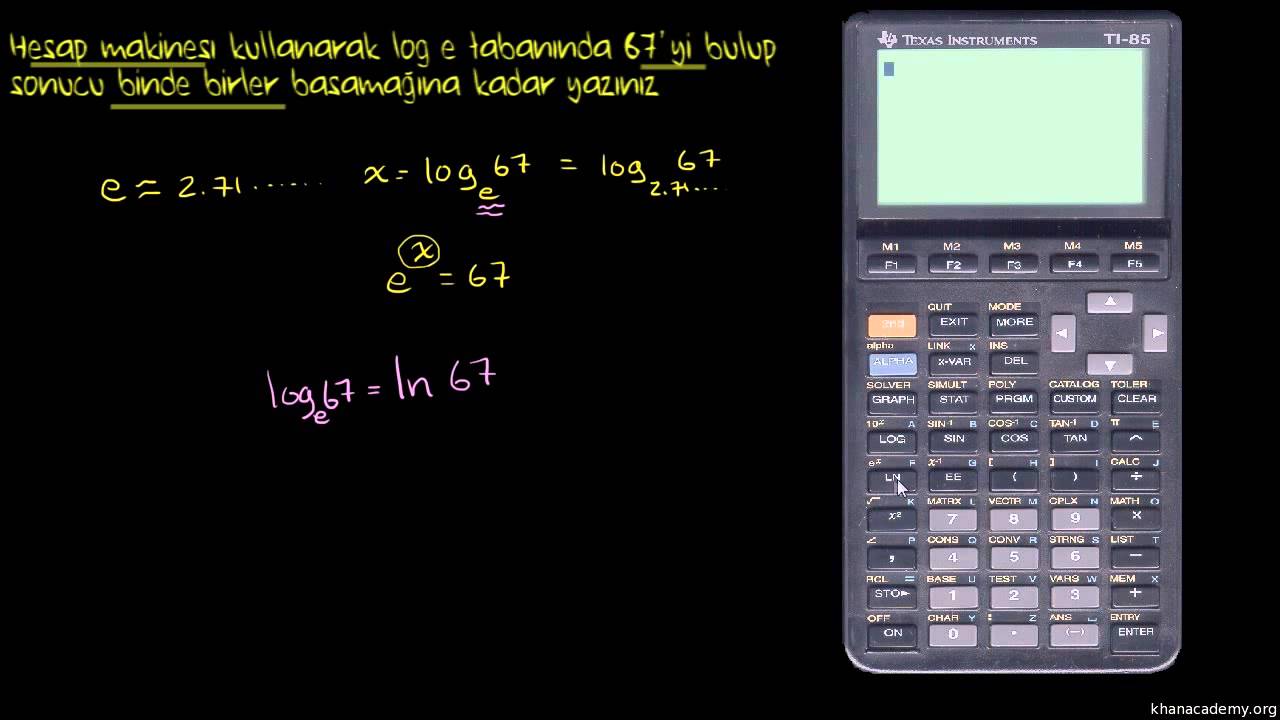 Hesap makinesi kullanarak log e tabanında 67'yi bulup
sonucu binde birler basamağına kadar yazınız
e ≈ 2.71...... x = log_e 67 = log_2.71.... 67
e^x = 67
log_e 67 = ln 67
TEXAS INSTRUMENTS TI-85
M1 M2 M3 M4 M5
F1 F2 F3 F4 F5
QUIT MODE
2nd EXIT MORE
alpha LINK x INS
ALPHA x-VAR DEL
SOLVER SIMULT POLY CATALOG TOLER
GRAPH STAT PRGM CUSTOM CLEAR
10^x A SIN⁻¹ B COS⁻¹ C TAN⁻¹ D π E
LOG SIN COS TAN ^
e^x F x⁻¹ G [ H ] I CALC J
LN EE ( ) ÷
√ K MATRX L VECTR M CPLX N MATH O
x² 7 8 9 ×
∠ P CONS Q CONV R STRNG S LIST T
, 4 5 6 −
RCL = BASE U TEST V VARS W MEM X
STO▸ 1 2 3 +
OFF CHAR Y : Z ANS ␣ ENTRY
ON 0 . (−) ENTER
khanacademy.org